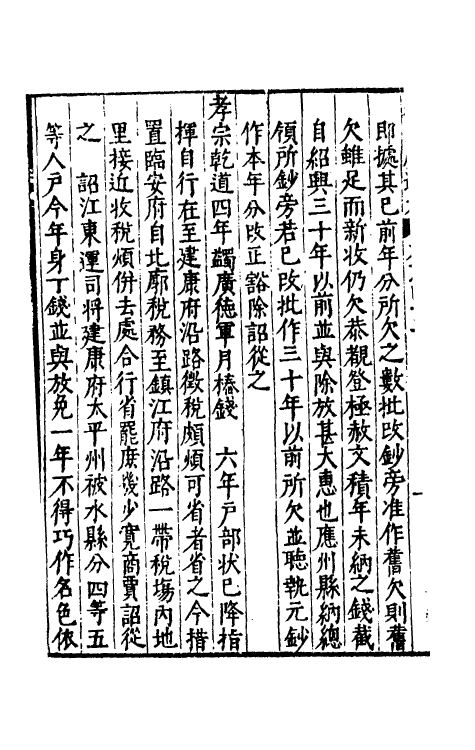 即據其已前年分所欠之數批改鈔旁准作舊欠則舊
欠雖足而新收仍欠恭觀登極赦文積年未納之錢截
自紹興三十年以前並與除放甚大惠也應州縣納總
領所鈔旁若已改批作三十年以前所欠並聽執元鈔
作本年分改正豁除詔從之
孝宗乾道四年蠲廣德軍月樁錢　六年戶部狀已降指
揮自行在至建康府沿路徵稅頗煩可省者省之今措
置臨安府自北郭稅務至鎮江府沿路一帶稅場內地
里接近收稅煩併去處合行省罷庶幾少寬商賈詔從
之　詔江東運司將建康府太平州被水縣分四等五
等人戶今年身丁錢並與放免一年不得巧作名色依